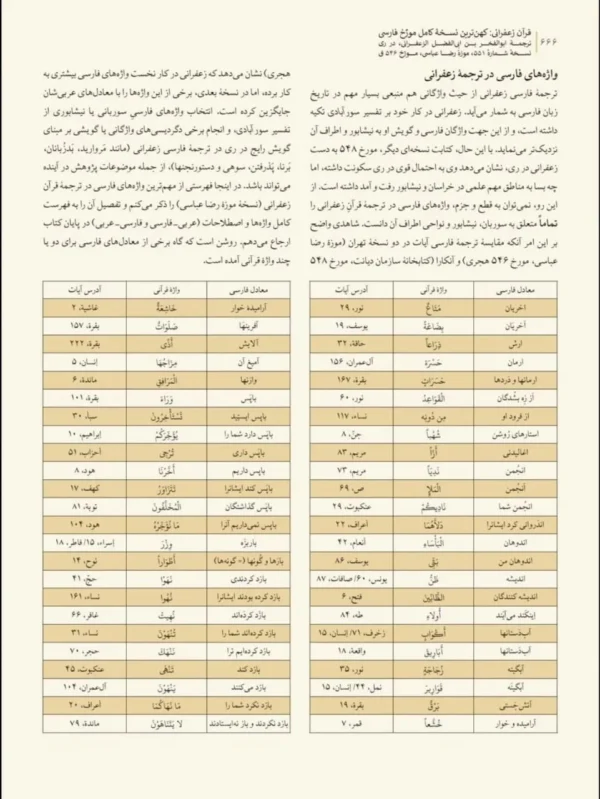 ۶۶۶
قرآن زعفرانی: کهن‌ترین نسخهٔ کامل مورّخ فارسی
ترجمهٔ ابوالفخر بن ابی‌الفضل الزعفرانی، در ری
نسخهٔ شمارهٔ ۵۵۱، موزهٔ رضا عباسی، مورّخ ۵۴۶ ق
واژه‌های فارسی در ترجمهٔ زعفرانی
ترجمهٔ فارسی زعفرانی از حیث واژگانی هم منبعی بسیار مهم در تاریخ
زبان فارسی به شمار می‌آید. زعفرانی در کار خود بر تفسیر سورآبادی تکیه
داشته است، و از این جهت واژگان فارسی و گویش او به نیشابور و اطراف آن
نزدیک‌تر می‌نماید. با این حال، کتابت نسخه‌ای دیگر، مورخ ۵۴۸ به دست
زعفرانی در ری، نشان می‌دهد وی به احتمال قوی در ری سکونت داشته، اما
چه بسا به مناطق مهم علمی در خراسان و نیشابور رفت و آمد داشته است. از
این رو، نمی‌توان به قطع و جزم، واژه‌های فارسی در ترجمهٔ قرآنِ زعفرانی را
تماماً متعلق به سوربان، نیشابور و نواحی اطراف آن دانست. شاهدی واضح
بر این امر آنکه مقایسهٔ ترجمهٔ فارسی آیات در دو نسخهٔ تهران (موزهٔ رضا
عباسی، مورخ ۵۴۶ هجری) و آنکارا (کتابخانهٔ سازمان دیانت، مورخ ۵۴۸
هجری) نشان می‌دهد که زعفرانی در کار نخست واژه‌های فارسی بیشتری به
کار برده، اما در نسخهٔ بعدی، برخی از این واژه‌ها را با معادل‌های عربی‌شان
جایگزین کرده است. انتخاب واژه‌های فارسیِ سوربانی یا نیشابوری از
تفسیر سورآبادی، و انجام برخی دگردیسی‌های واژگانی یا گویشی بر مبنای
گویش رایج در ری در ترجمهٔ فارسی زعفرانی (مانند مَروارید، بَدزُبانان،
بَرنا، پَذَرفتن، سوهی و دستورنجنها)، از جمله موضوعات پژوهش در آینده
می‌تواند باشد. در اینجا فهرستی از مهم‌ترین واژه‌های فارسی در ترجمهٔ قرآن
زعفرانی (نسخهٔ موزهٔ رضا عباسی) را ذکر می‌کنم و تفصیل آن را به فهرست
کامل واژه‌ها و اصطلاحات (عربی-فارسی و فارسی-عربی) در پایان کتاب
ارجاع می‌دهم. روشن است که گاه برخی از معادل‌های فارسی برای دو یا
چند واژهٔ قرآنی آمده است.
معادل فارسی واژهٔ قرآنی آدرس آیات
اخریان مَتَاعٌ نور، ۲۹
آخریَان بِضَاعَةٌ یوسف، ۱۹
ارش ذِرَاعاً حاقة، ۳۲
ارمان حَسْرَة آل‌عمران، ۱۵۶
ارمانها و دَردها حَسَرَاتٍ بقرة، ۱۶۷
از زِه بشُدگان الْقَوَاعِدُ نور، ۶۰
از فرود او مِن دُونِه نساء، ۱۱۷
استارهای رُوشن شُهُباً جنّ، ۸
اغالیدنی أَزّاً مریم، ۸۳
انجُمن نَدِیّاً مریم، ۷۳
آنجُمن الْمَلَإِ ص، ۶۹
انجُمن شما نَادِیکُمُ عنکبوت، ۲۹
اندروائی کرد ایشانرا دَلَّاهُمَا أعراف، ۲۲
اندوهان الْبَأْسَاءِ أنعام، ۴۲
اندوهان من بَثِّی یوسف، ۸۶
اندیشه ظَنُّ یونس، ۶۰/ صافات، ۸۷
اندیشه کنندگان الظَّانِّینَ فتح، ۶
أُولَاءِ طه، ۸۴
آب‌دَستانها أَکْوَابٍ زخرف، ۷۱/ إنسان، ۱۵
آب‌دَستانها أَبَارِیقَ واقعة، ۱۸
آبگینه زُجَاجَةٍ نور، ۳۵
آبگینه قَوَارِیرَ نمل، ۴۴/ إنسان، ۱۵
آتش‌جَستی بَرْقٌ بقرة، ۱۹
آرامیده و خوار خُشَّعاً قمر، ۷
معادل فارسی واژهٔ قرآنی آدرس آیات
آرامیده خوار خَاشِعَةٌ غاشیة، ۲
آفرینها صَلَوَاتٌ بقرة، ۱۵۷
آلایش أَذًی بقرة، ۲۲۲
آمیغ آن مِزَاجُهَا إنسان، ۵
وارنها الْمَرَافِقِ مائدة، ۶
باپَس وَرَاءَ بقرة، ۱۰۱
باپَس ایستید تَسْتَأْخِرُونَ سبأ، ۳۰
باپَس دارد شما را یُؤَخِّرَکُمْ إبراهیم، ۱۰
باپَس داری تُرْجِی أحزاب، ۵۱
باپَس داریم أَخَّرْنَا هود، ۸
باپس کند ایشانرا تَتَزَاوَرُ کهف، ۱۷
باپس گذاشتگان الْمُخَلَّفُونَ توبة، ۸۱
باپس نمی‌داریم آنرا مَا نُؤَخِّرُهُ هود، ۱۰۴
باربزه وِزْرَ إسراء، ۱۵/ فاطر، ۱۸
بازها و گُونها (= گونه‌ها) أَطْوَاراً نوح، ۱۴
بازد کردندی نَهَوْا حجّ، ۴۱
بازد کرده بودند ایشانرا نُهُوا نساء، ۱۶۱
بازد کرده‌اند نُهِیتُ غافر، ۶۶
بازد کرده‌اند شما را تُنْهَوْنَ نساء، ۳۱
بازد کرده‌ایم ترا نَنْهَكَ حجر، ۷۰
بازد کند تَنْهَی عنکبوت، ۴۵
بازد می‌کنند یَنْهَوْنَ آل‌عمران، ۱۰۴
بازد نکرد شما را مَا نَهَاکُمَا أعراف، ۲۰
بازد نکردند و باز نه‌ایستادند لا یَتَنَاهَوْنَ مائدة، ۷۹